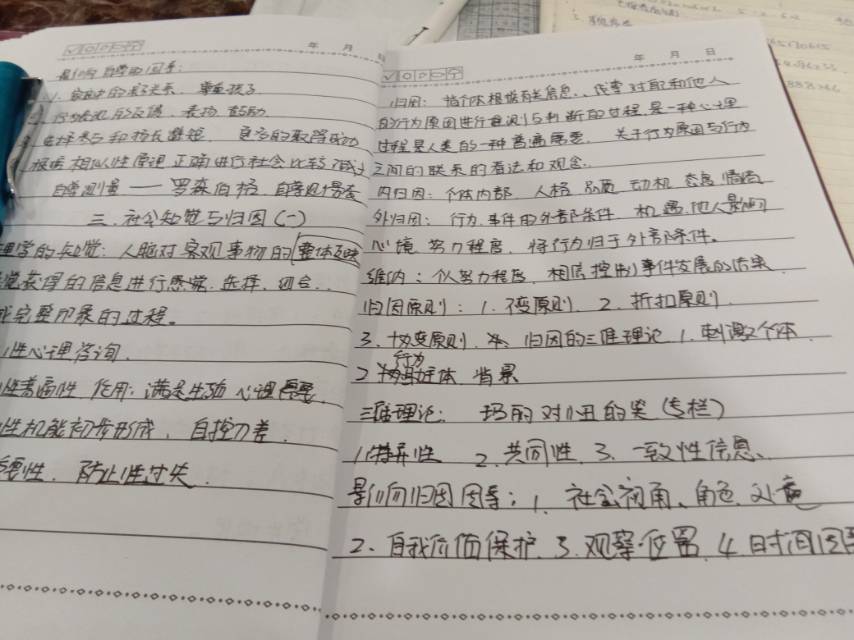 年 月 日
影响自尊的因素：
1. 家庭中的亲子关系. 尊重孩子
选择参与和扬长避短. 更多的取得成功
根据相似性原理 正确进行社会比较
自尊测量 —— 罗森伯格. 自尊测量表
三. 社会知觉与归因 (一)
理学的知觉：人脑对客观事物的整体反映
觉获得的信息进行感觉. 选择. 组合..
成完整印象的过程。
性心理咨询.
性普遍性 作用：满足生殖 心理需要.
性机能初步形成、自控力差.
要性. 防止性过失.
年 月 日
归因：指个体根据有关信息、线索对自己和他人
的行为原因进行推测与判断的过程. 是一种心理
过程是人类的一种普遍需要. 关于行为原因与行为
之间的联系的看法和观念.
内归因：个体内部、人格 品质 动机 态度 情绪
外归因：行为.事件的外部条件. 机遇. 他人影响
心境. 努力程度. 将行为归于外部条件。
维内：个人努力程度. 相信控制事件发展的结果.
归因原则：1. 不变原则. 2. 折扣原则.
3. 协变原则. 归因的三维理论. 1. 刺激 个体.
2 行为 主体. 背景
三维理论：玛丽对小丑的笑(专栏)
1. 特异性 2. 共同性. 3. 一致性信息、
影响归因因素：1. 社会视角、角色
2. 自我价值保护. 3. 观察位置. 4. 时间因